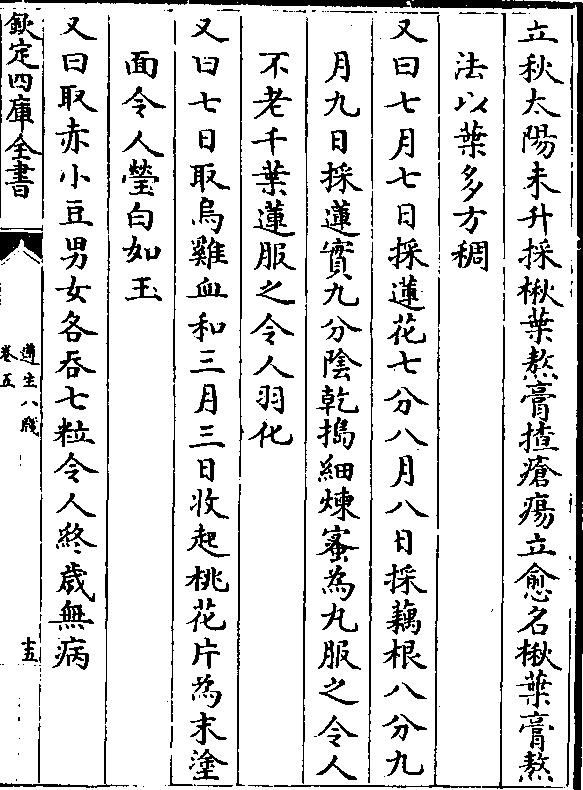 立秋太陽未升採楸葉熬膏搽瘡瘍立愈名楸葉膏熬
法以葉多方稠
又曰七月七日採蓮花七分八月八日採藕根八分九
月九日採蓮實九分陰乾搗細煉蜜為丸服之令人
不老千葉蓮服之令人羽化
又曰七日取烏雞血和三月三日收起桃花片為末塗
面令人瑩白如玉
又曰取赤小豆男女各吞七粒令人終歲無病
欽定四庫全書
遵生八牋
卷五
十五